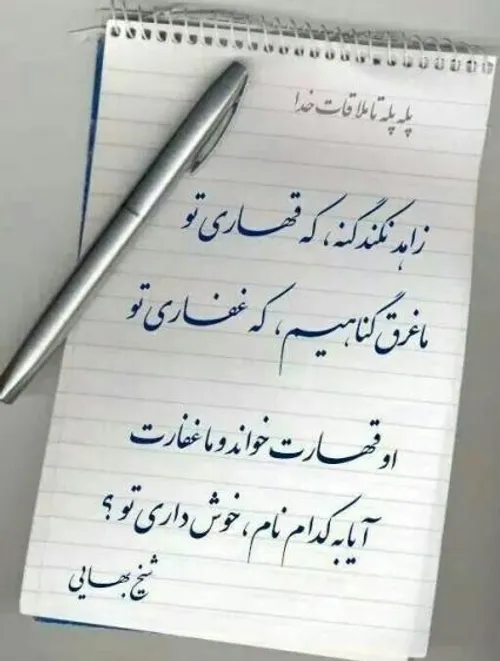 پله پله تا ملاقات خدا
زاهد نکند گنه، که قهاری تو
ما غرق گناهیم، که غفاری تو
او قهارت خواند و ما غفارت
آیا به کدام نام، خوش داری تو ؟
شیخ بهایی